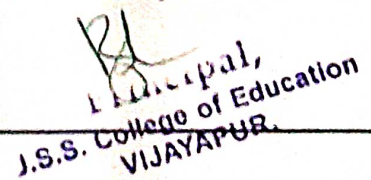 Principal,
J.S.S. College of Education
VIJAYAPUR.